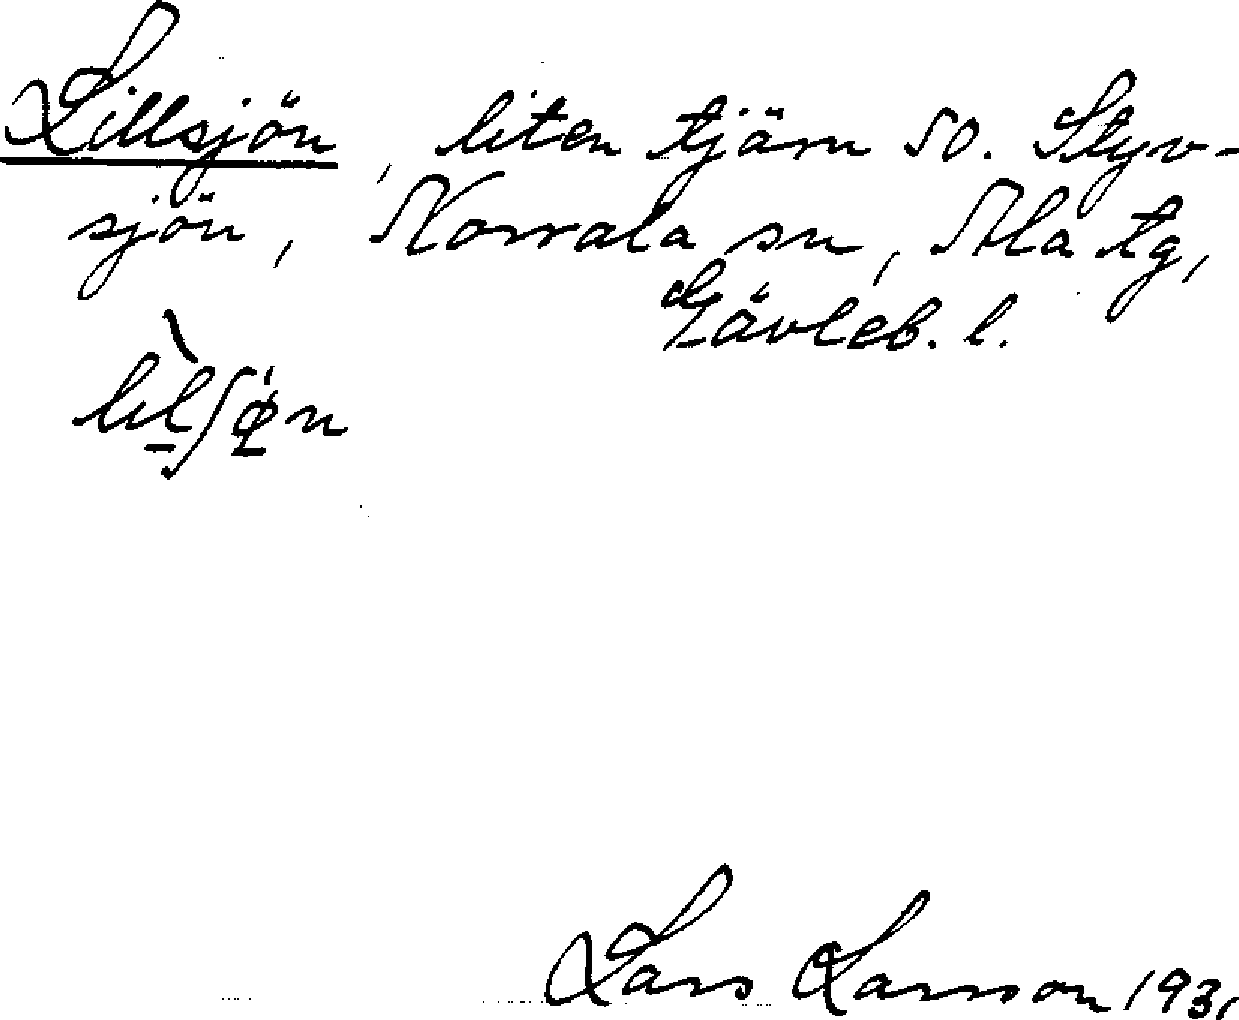 Lillsjön, liten tjärn SO. Styv-
sjön, Norrala sn, Ala tg,
Gävleb. l.
Lars Larsson 1931